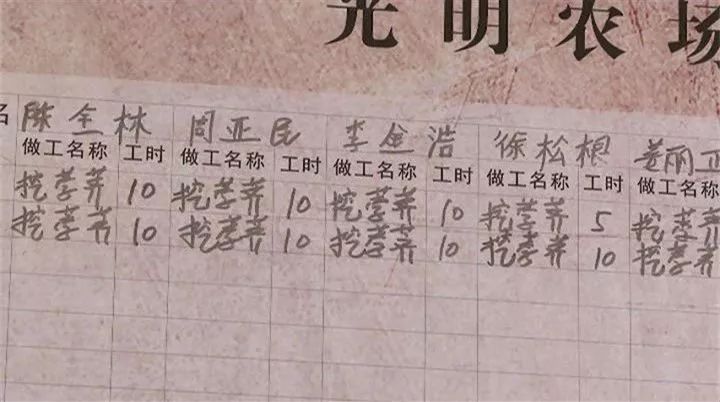 光明农场
名 陈全林 周亚民 李金浩 徐松根 姜丽正
做工名称 工时 做工名称 工时 做工名称 工时 做工名称 工时 做工名称
挖荸荠 10 挖荸荠 10 挖荸荠 10 挖荸荠 5 挖荸荠
挖荸荠 10 挖荸荠 10 挖荸荠 10 挖荸荠 10 挖荸荠